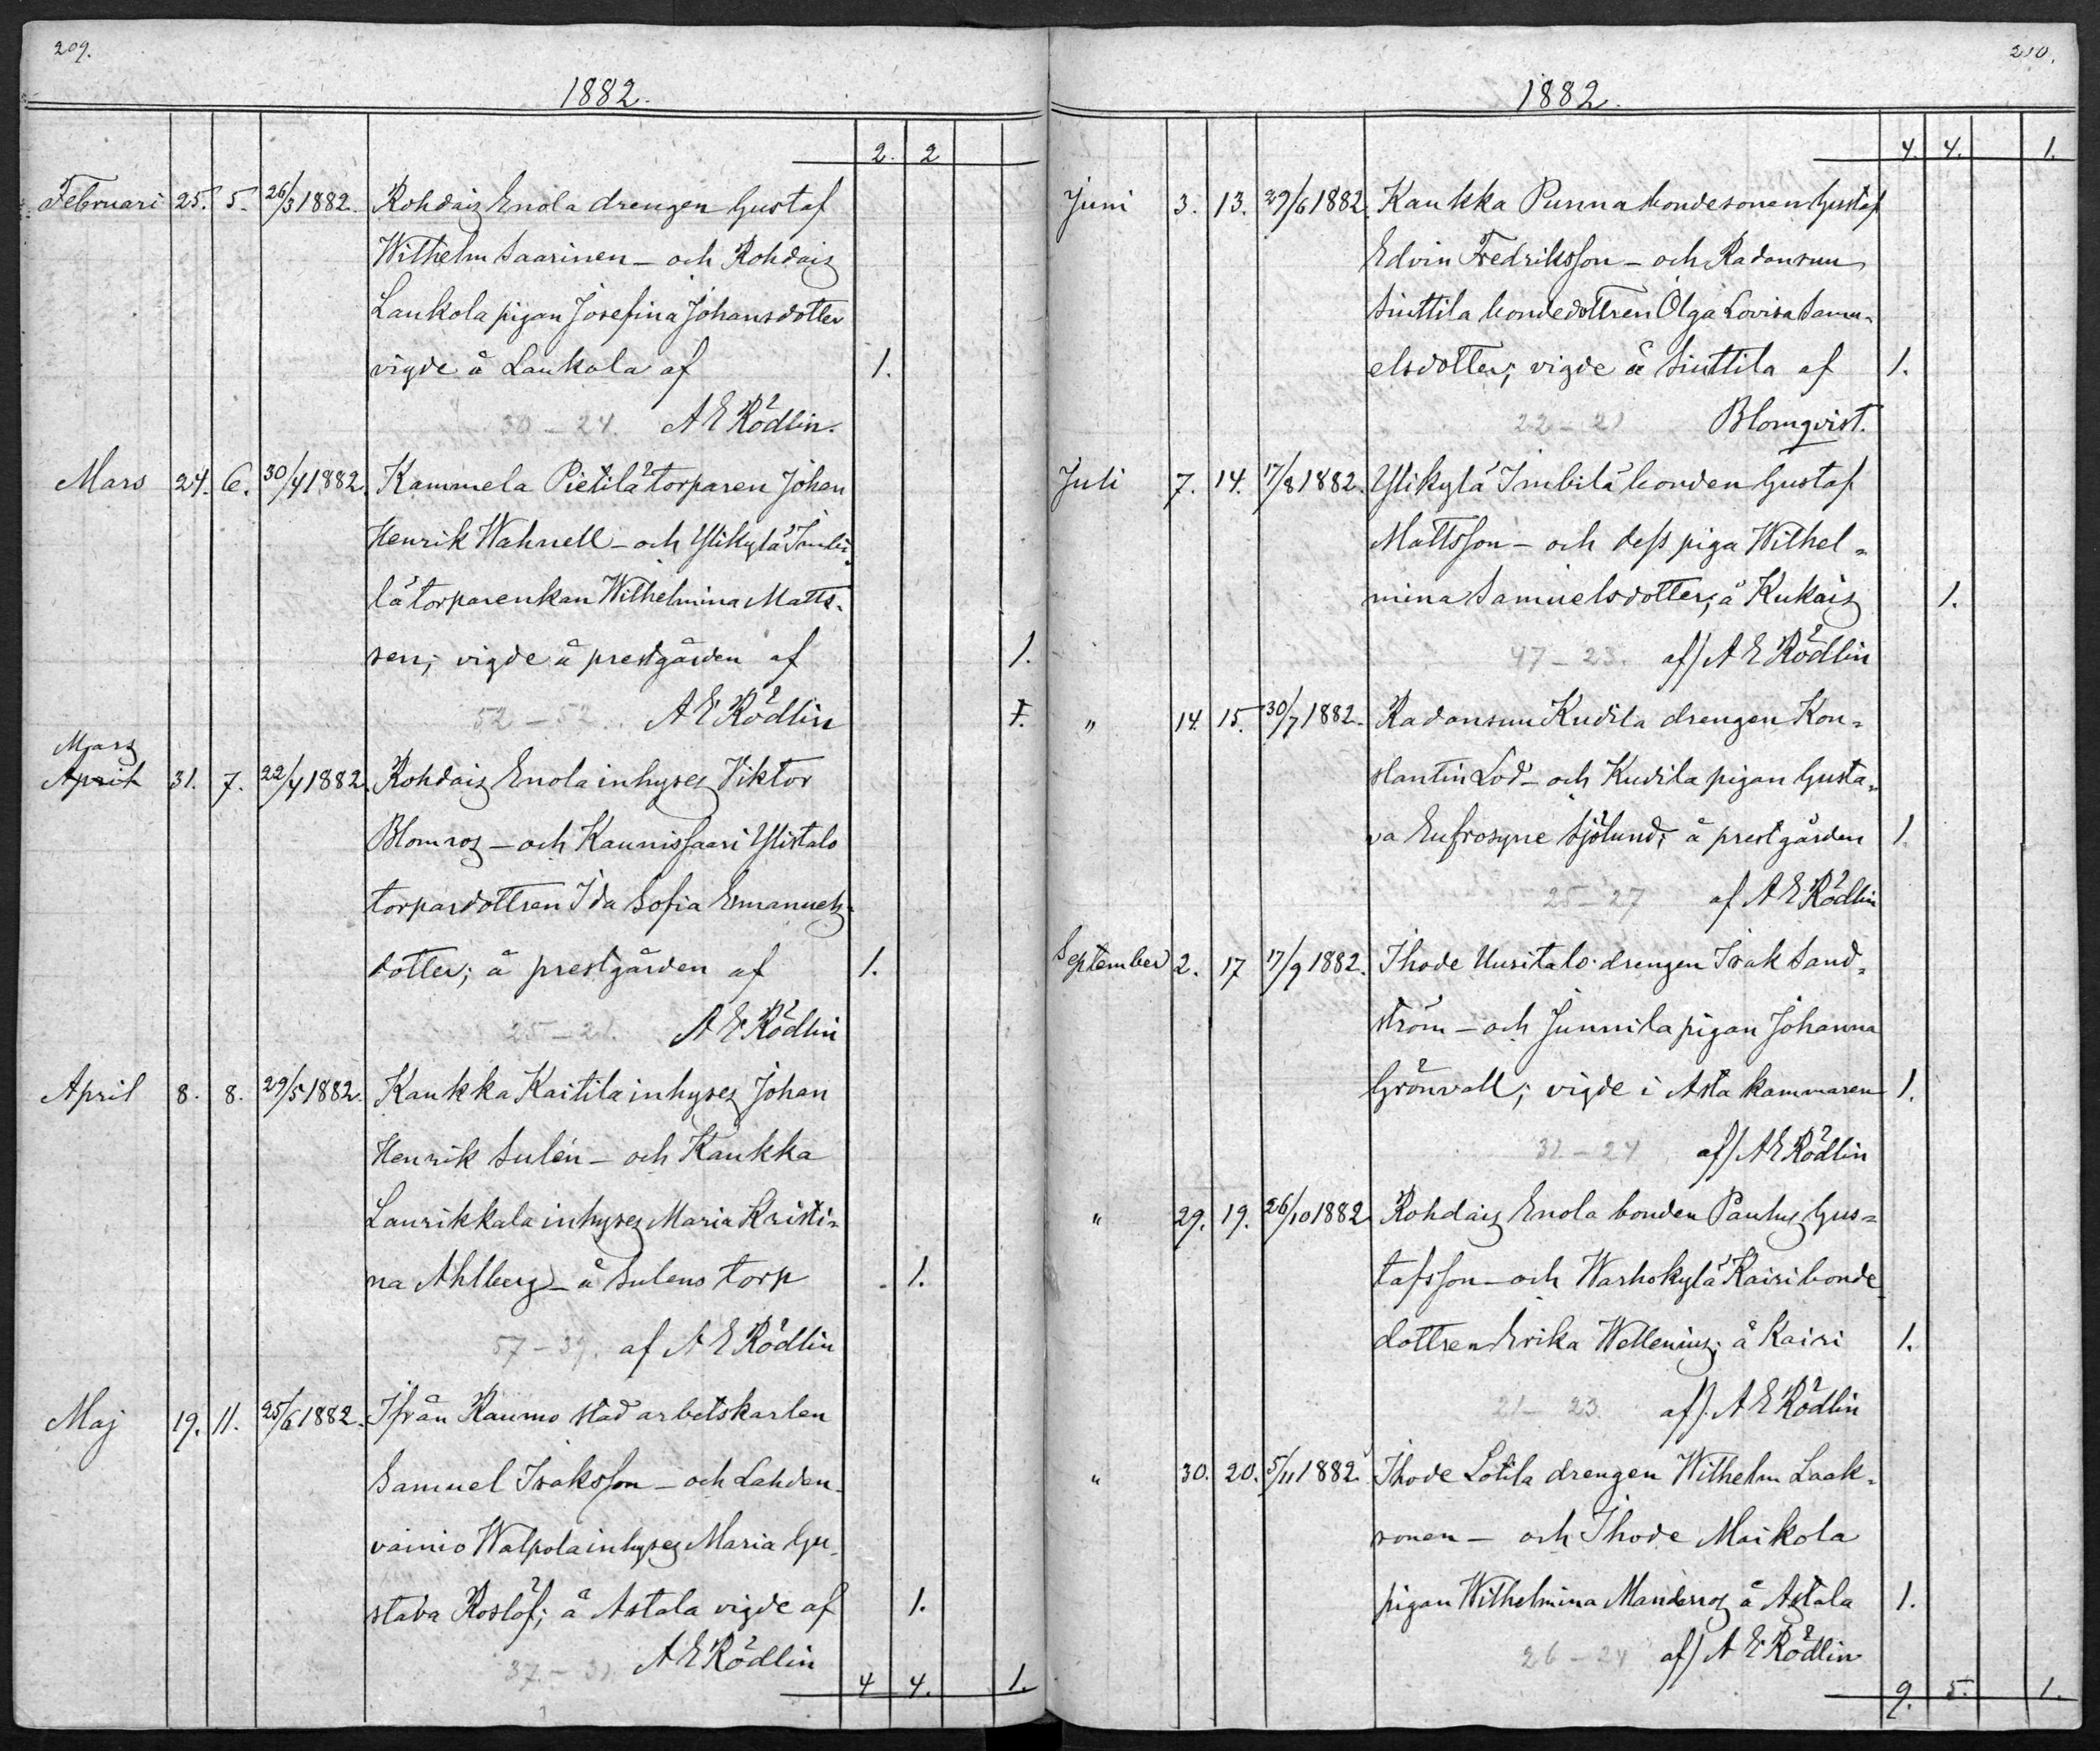 209.
1882.
2. 2
Februari 25. 5. 26/3 1882. Rohdais Enola drengen Gustaf
Wilhelm Saarinen – och Rohdais
Laukola pigan Josefina Johansdotter
vigde å Laukola af 1.
30 – 24. A E Rödlin.
Mars 24. 6. 30/4 1882. Kammela Pietilä torparen Johan
Henrik Wahnell – och Ylikylä Imbi-
lä torparenkan Wilhelmina Matts-
sen; vigde å prestgården af 1.
52 – 52. A E Rödlin 1.
Mars
April 31. 7. 22/4 1882. Rohdais Enola inhyses Viktor
Blomros – och Kaunissaari Ylistalo
torpardottren Ida Sofia Emanuels-
dotter; å prestgården af 1.
25 – 21. A E Rödlin
April 8. 8. 29/5 1882. Kaukka Kaitila inhyses Johan
Henrik Sulén – och Kaukka
Laurikkala inhyses Maria Kristi=
na Ahlberg – å Sulens torp 1.
57 – 39. af A E Rödlin
Maj 19. 11. 25/6 1882. Ifrån Raumo stad arbetskarlen
Samuel Isaksson – och Lahden-
vainio Walpola inhyses Maria Gu-
stava Roslöf; å Astala vigde af 1.
37 – 31 A E Rödlin
4 4. 1.
210.
1882.
4. 4. 1.
Juni 3. 13. 29/6 1882. Kaukka Punna bondesonen Gustaf
Edvin Fredriksson – och Radansuu
Siuttila bondedottren Olga Lovisa Samu-
elsdotter; vigde å Siuttila af 1.
22 – 21 Blomqvist.
Juli 7. 14. 17/8 1882. Ylikylä Imbilä bonden Gustaf
Mattsson – och dess piga Wilhel=
mina Samuelsdotter; å Kukais 1.
47 – 23. af) A E Rödlin
" 14. 15. 30/7 1882. Radansuu Kudila drengen Kon=
stantin Lod – och Kudila pigan Gusta=
va Eufrosyne Sjölund; å prestgården 1.
25 – 27 af A E Rödlin
September 2. 17 17/9 1882. Ihode Uusitalo drengen Isak Sand=
ström – och Junnila pigan Johanna
Grönvall; vigde i Asta kammaren 1.
31 – 24 af) A E Rödlin
" 29. 19. 26/10 1882 Rohdais Enola bonden Paulus Gus=
tafsson – och Warhokylä Kairi bonde-
dottren Erika Wellenius; å Kairi 1.
21 – 23. af). A E Rödlin
" 30. 20. 5/11 1882. Ihode Lotila drengen Wilhelm Laak-
sonen – och Ihode Maikola
pigan Wilhelmina Manderros å Astala 1.
26 – 24 af) A E Rödlin
9. 5. 1.